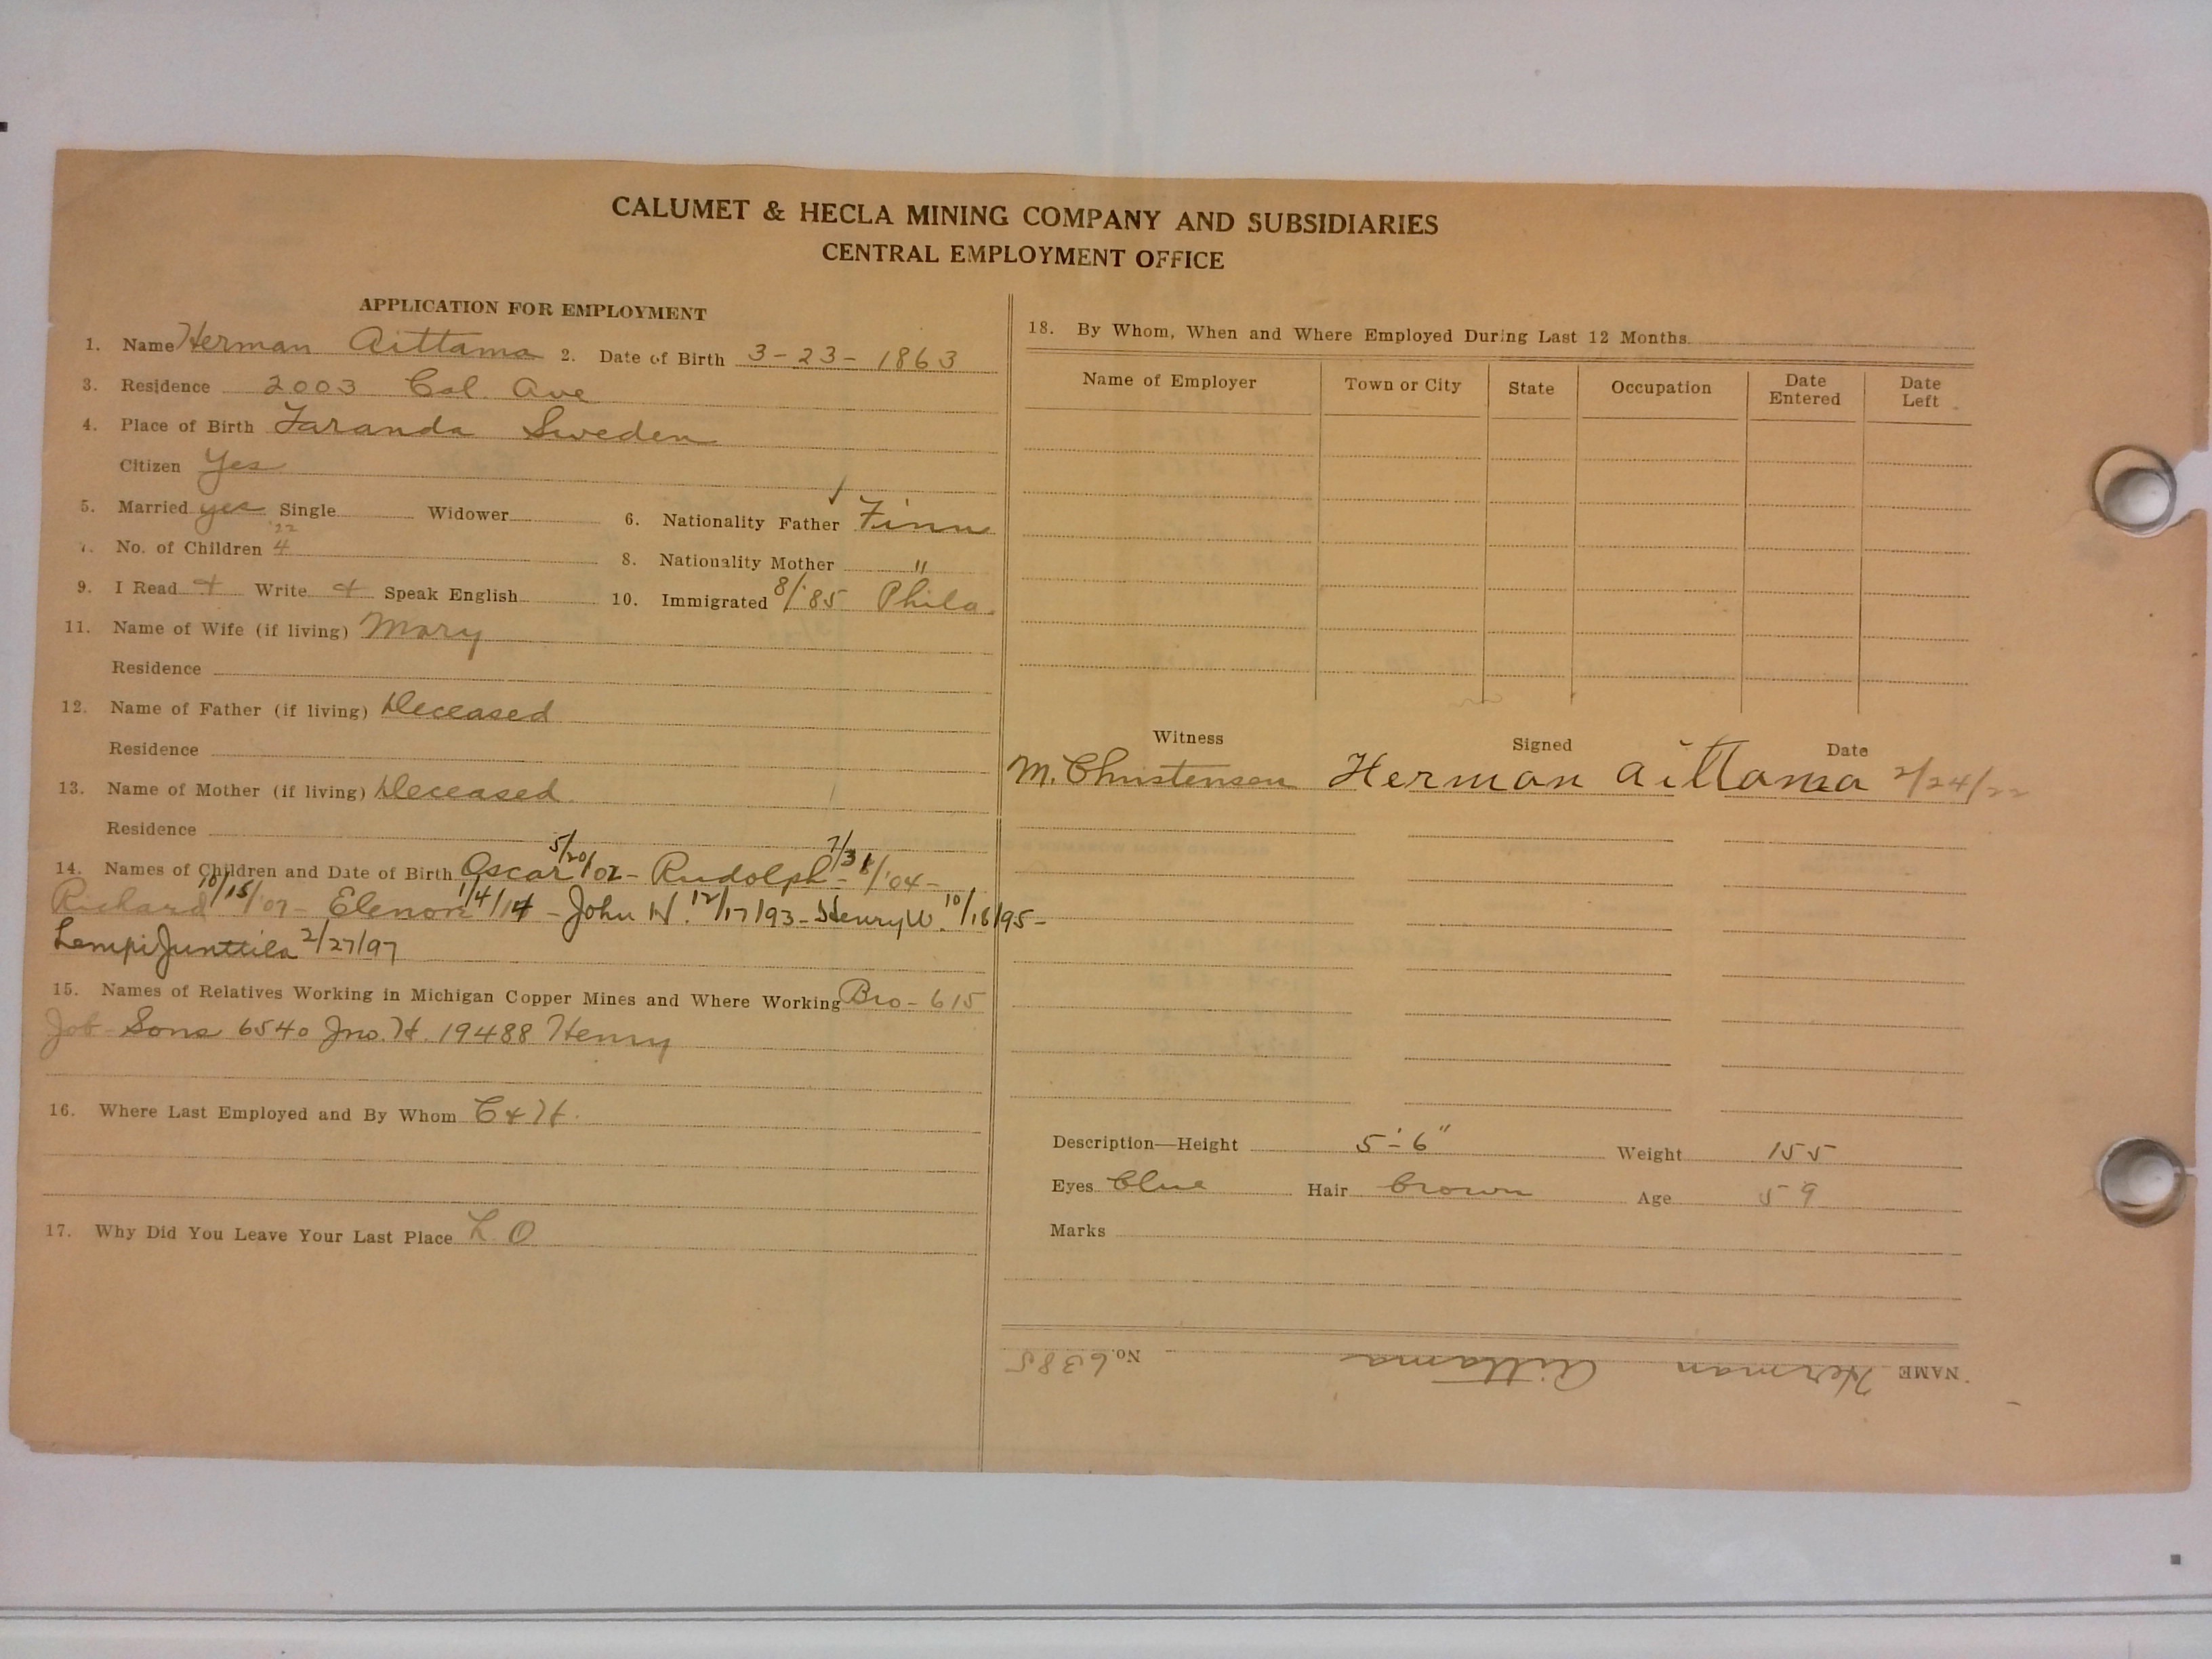 CALUMET & HECLA MINING COMPANY AND SUBSIDIARIES
CENTRAL EMPLOYMENT OFFICE
APPLICATION FOR EMPLOYMENT
1. Name Herman Aittama 2. Date of Birth 3-23-1863
3. Residence 2003 Cal. Ave
4. Place of Birth Taranda Sweden
Citizen Yes
5. Married yes Single Widower 6. Nationality Father Finn
'22
7. No. of Children 4 8. Nationality Mother "
9. I Read + Write + Speak English 10. Immigrated 8/'85 Phila.
11. Name of Wife (if living) Mary
Residence
12. Name of Father (if living) Deceased
Residence
13. Name of Mother (if living) Deceased
Residence
14. Names of Children and Date of Birth Oscar 5/20/02 - Rudolph - 7/31/'04 -
Richard 10/15/'07 - Elenor 1/4/14 - John H. 12/17/93 - Henry W. 10/18/95 -
Lempi Junttila 2/27/97
15. Names of Relatives Working in Michigan Copper Mines and Where Working Bro - 615
Job - Sons 6540 Jno. H. 19488 Henry
16. Where Last Employed and By Whom C & H.
17. Why Did You Leave Your Last Place L O
18. By Whom, When and Where Employed During Last 12 Months
Name of Employer Town or City State Occupation Date Entered Date Left
Witness Signed Date
M. Christensen Herman Aittama 2/24/22
Description—Height 5'-6" Weight 155
Eyes blue Hair brown Age 59
Marks
NAME Herman Aittama No. 6385